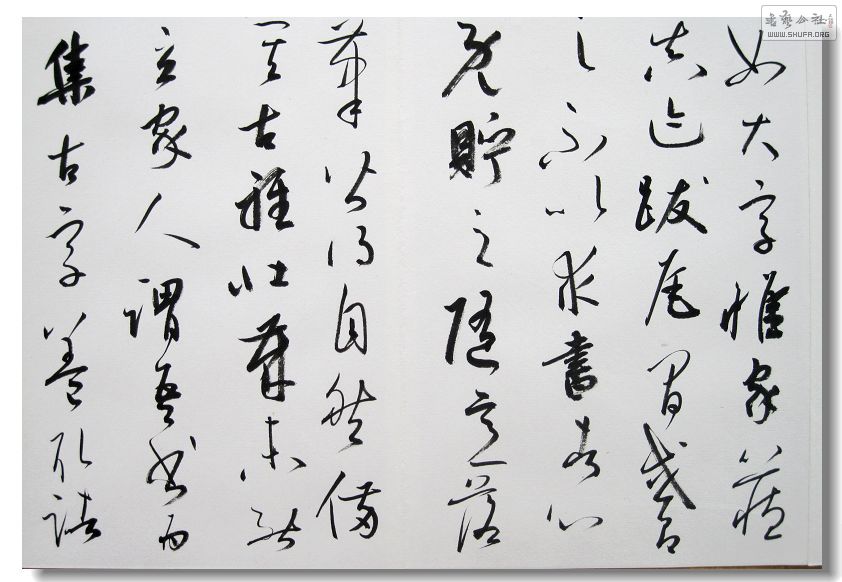 如大字惟家藏
真迹跋尾間或有
之不以求書者心
既貯之隨意落
筆皆得自然備
其古雅壯歲未能
立家人謂吾書為
集古字蓋取諸
書藝公社
WWW.SHUFA.ORG